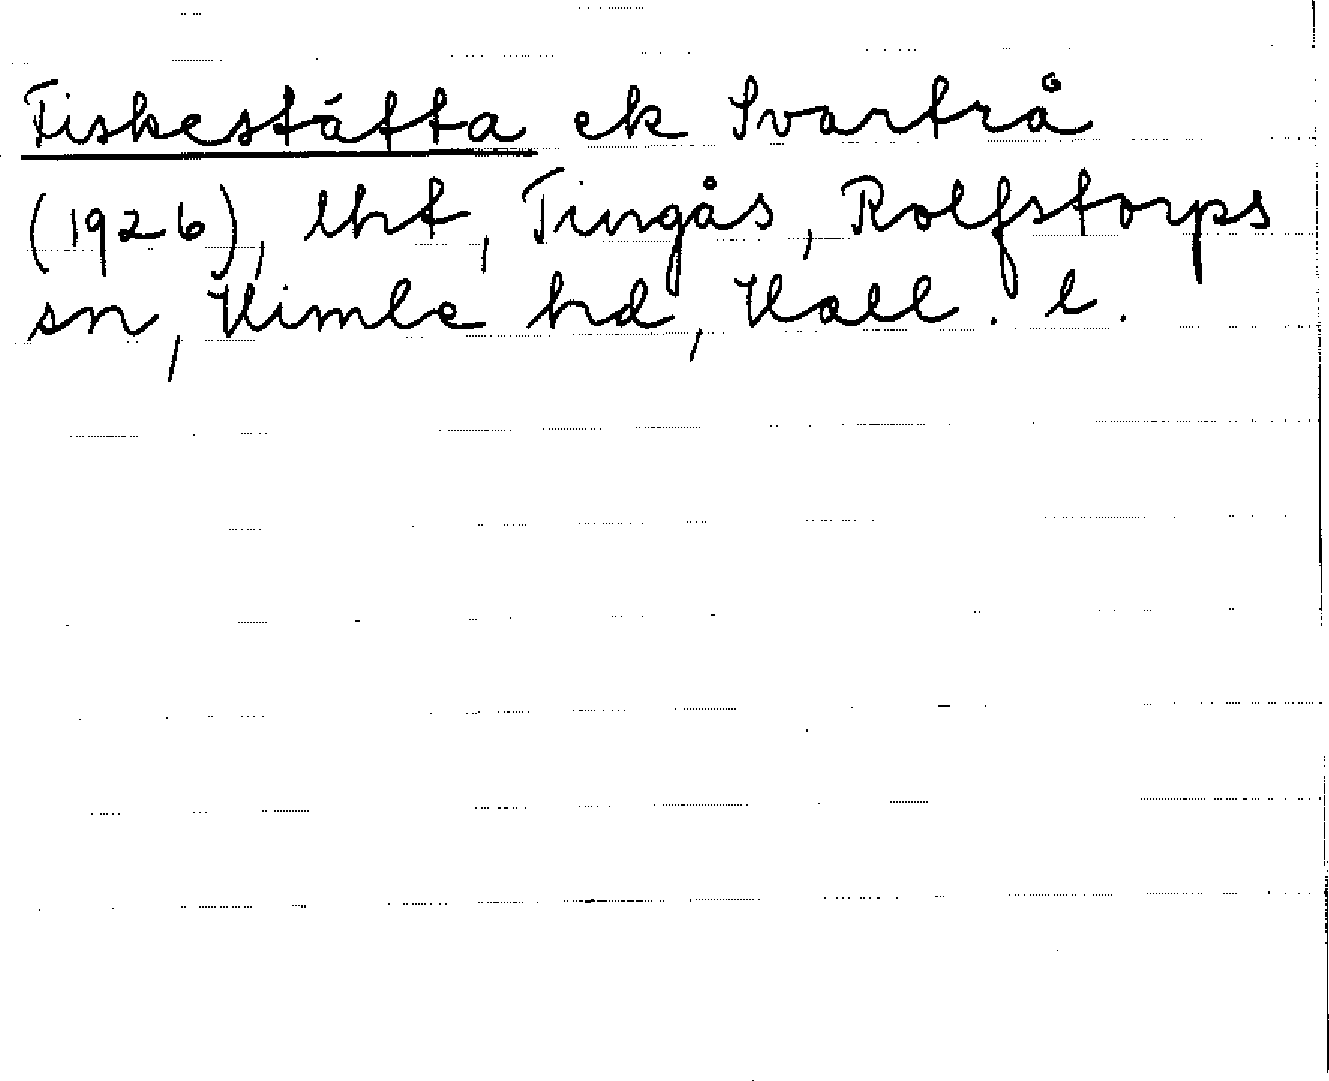 Fiskestätta ek Svartrå
(1926), lht, Tingås, Rolfstorps
sn, Himle hd, Hall. l.